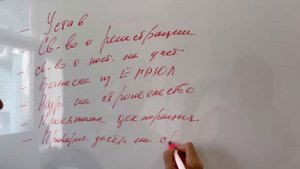 - Устав
- Св-во о регистрации
- св-во о пост. на учёт
- Выписка из ЕГРЮЛ
- Разр. на строительство
- Проектная декларация
- Проверит. на с